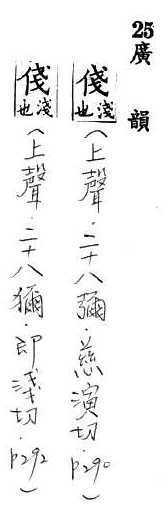 25廣韻
俴淺也(上聲.二十八彌.慈演切.p290)
俴淺也(上聲.二十八獼.即淺切.p292)